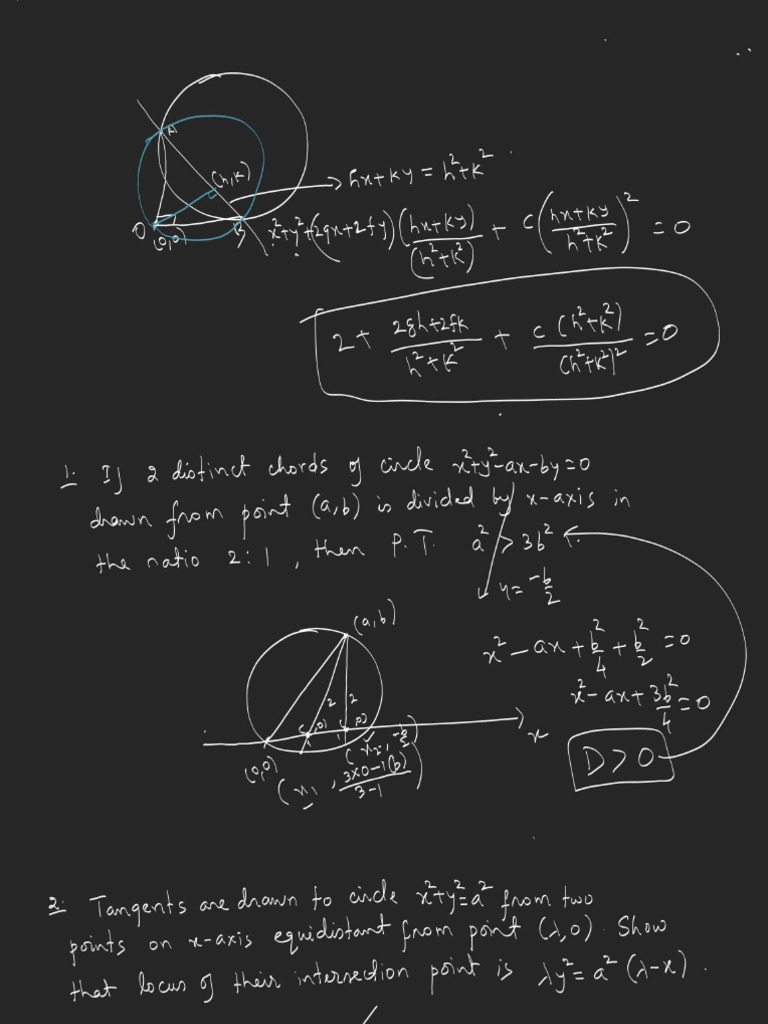 A
(h,k)
→ hx+ky = h²+k²
O
(0,0)
B
x²+y²+(2gx+2fy)(hx+ky)/(h²+k²) + c((hx+ky)/(h²+k²))² = 0
2 + (2gh+2fk)/(h²+k²) + c(h²+k²)/(h²+k²)² = 0
1. If 2 distinct chords of circle x²+y²-ax-by=0
drawn from point (a,b) is divided by x-axis in
the ratio 2:1, then P.T. a² > 3b²
y = -b/2
(a,b)
x² - ax + b²/4 + b²/2 = 0
x² - ax + 3b²/4 = 0
2
2
x
(0,0)
(x₂, -b/2)
(x₁, (3×0-1(b))/(3-1))
D>0
2. Tangents are drawn to circle x²+y²=a² from two
points on x-axis equidistant from point (λ,0). Show
that locus of their intersection point is λy² = a²(λ-x).